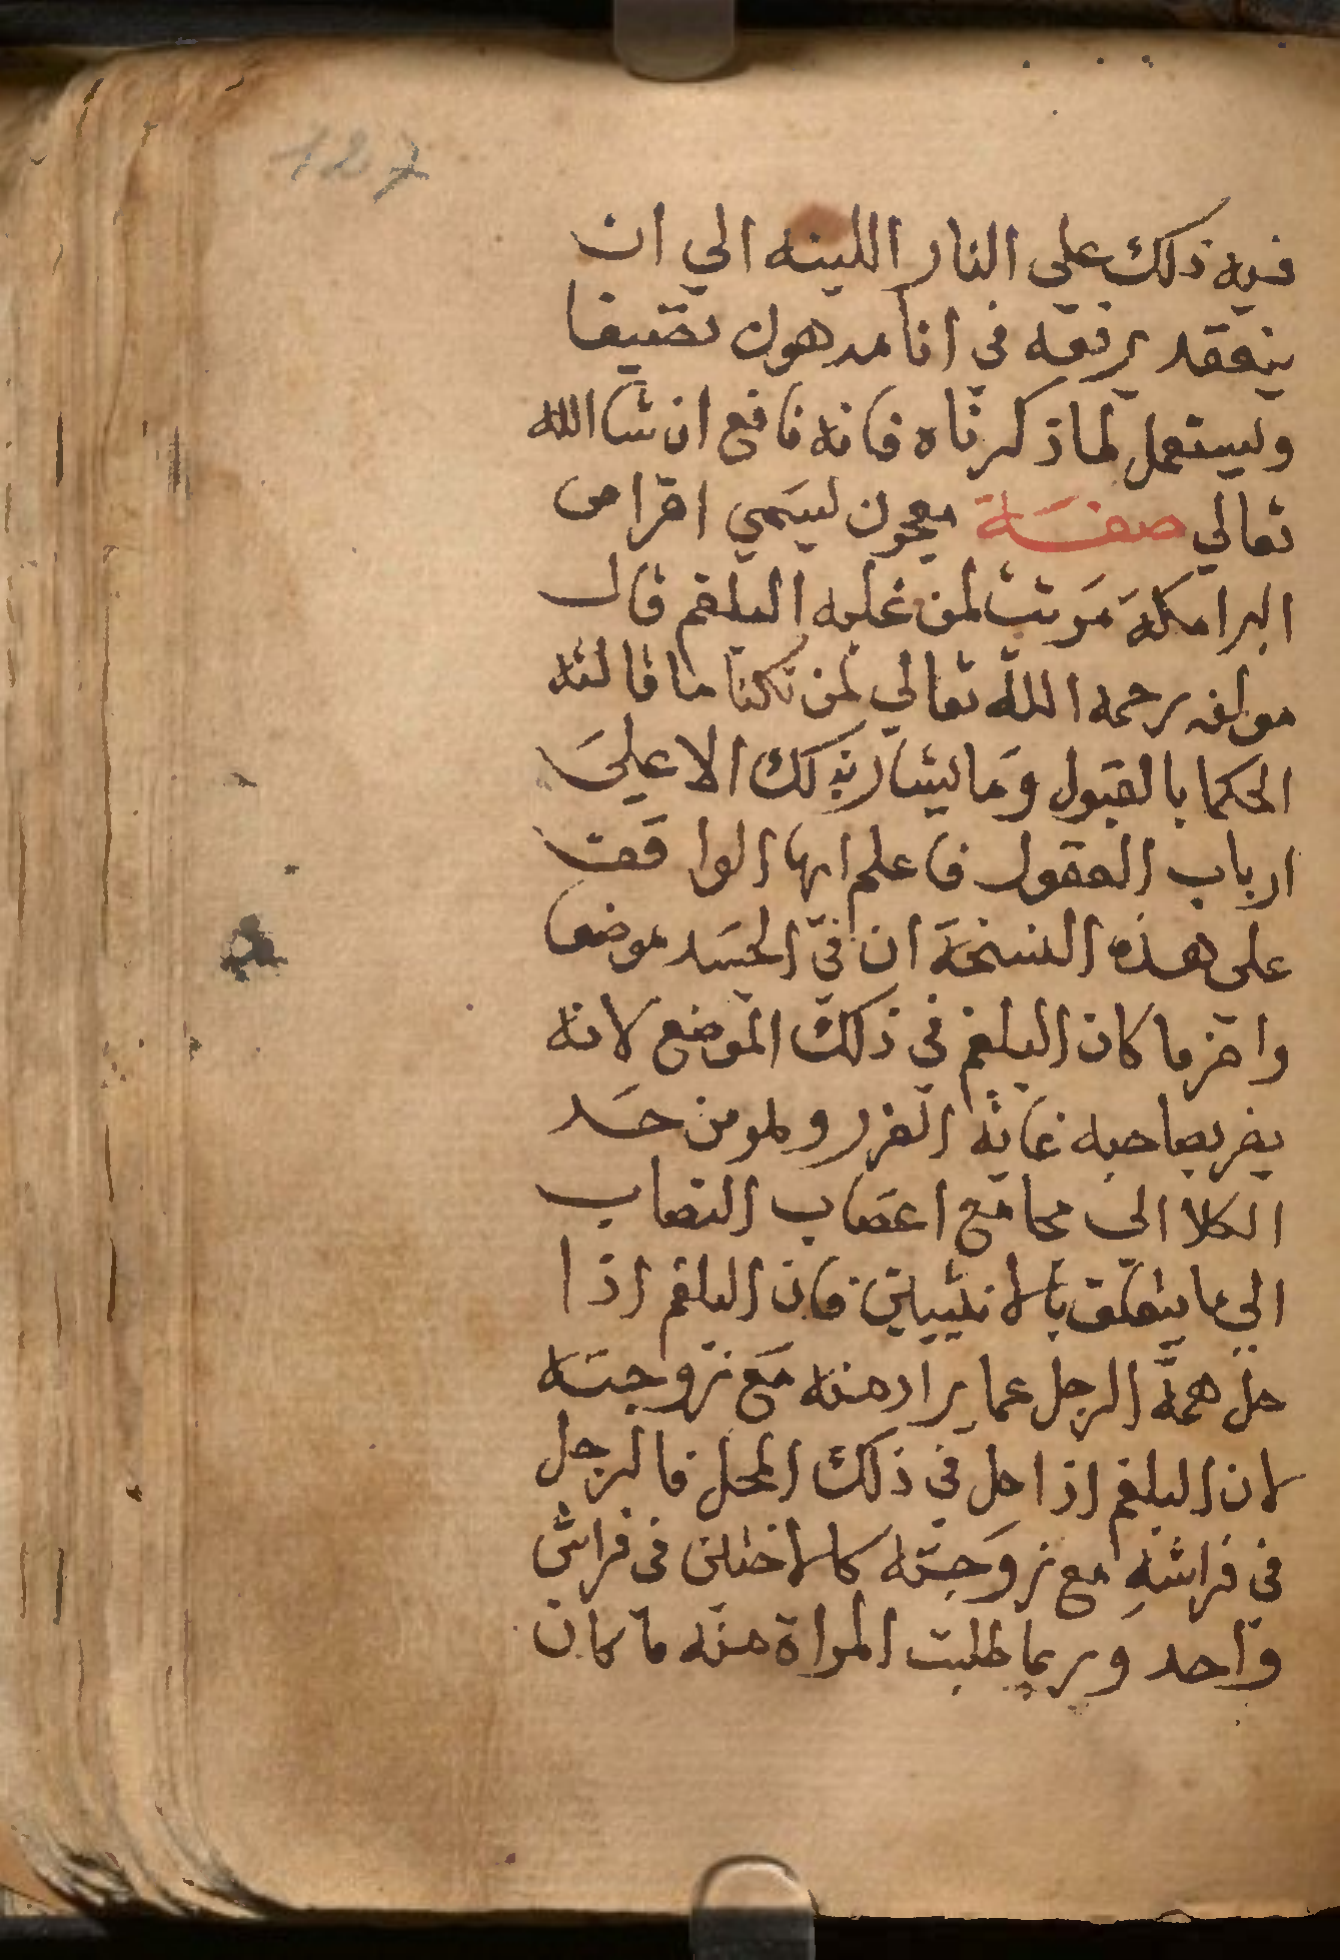 127
فيه ذلك على النار اللينه الي ان
ينعقد يرفعه في انا مدهون نضيفا
ويستعمل لما ذكرناه فانه نافع ان شا الله
تعالي صفة معجون يسمي اقراص
البرامكة مركب لمن غلبه البلغم قال
مولفه رحمه الله تعالي لمن تكنا ما قالته
الحكما بالقبول وما يشار بذلك الا علي
ارباب العقول فاعلم ايها الواقف
على هذه النسخة ان في الجسد موضعا
واضر ما كان البلغم في ذلك الموضع لانه
يضر بصاحبه غاية الضرر ولهو من حد
الكلا الي مجامع اعصاب النصاب
الي ما يتعلق بالانثيين فان البلغم اذا
حل همة الرجل عما يراد منه مع زوجته
لان البلغم اذا حل في ذلك المحل فالرجل
في فراشه مع زوجته كالاختين في فراش
واحد وربما طلبت المراة منه ما كان